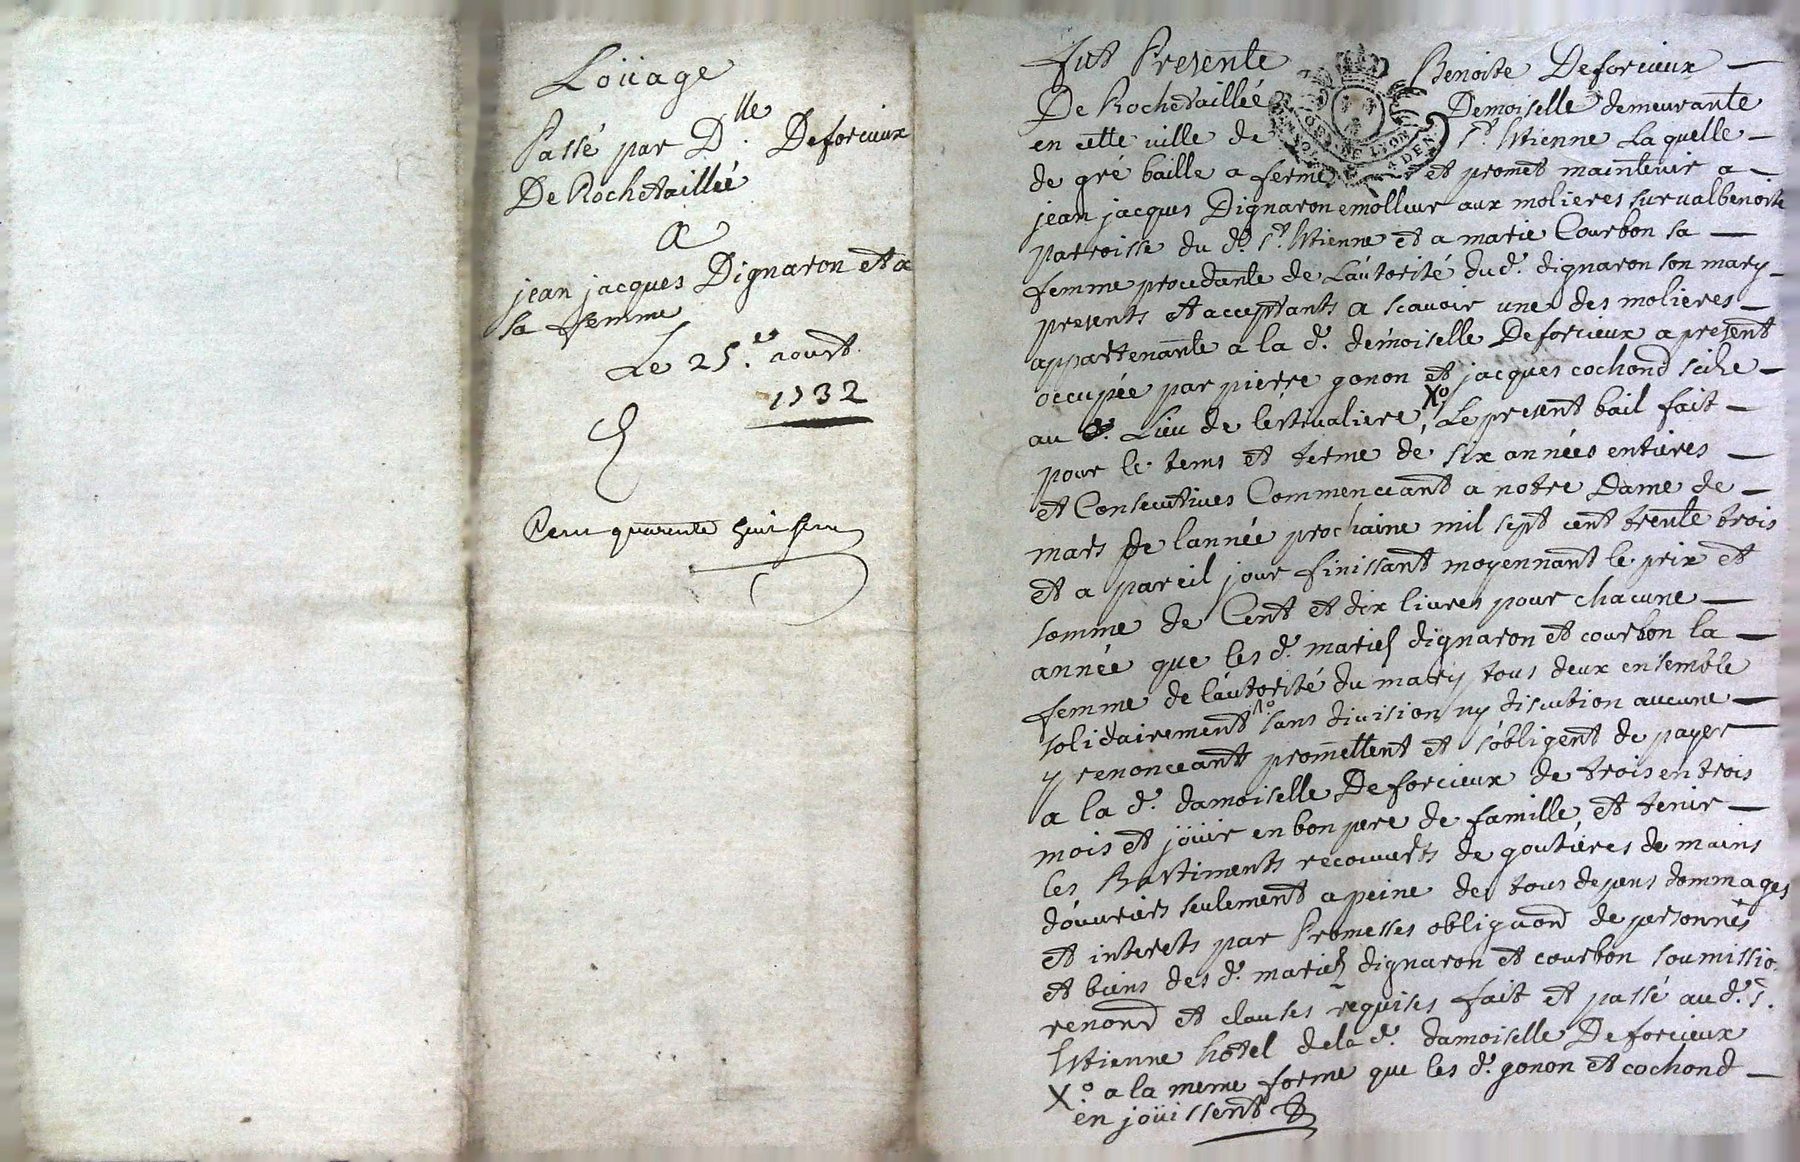 Loüage
Passé par D.lle Deforcieux
De Rochetaillée
A
jean jacques Dignaron et a
sa femme
Le 25.e aoust
1732
Cent quarante huit
fut Presente Benoite Deforcieux
De Rochetaillée Demoiselle demeurante
en cette ville de St. Etienne Laquelle
de gré baille a ferme et promet maintenir a
jean jacques Dignaron emolleur aux molieres sur valbenoite
parroisse du d. St. Etienne et a marie Courbon sa
femme procedante de L'autorité dud. dignaron son mary
presents et acceptants a scavoir une des molieres
appartenante a la d. demoiselle Deforcieux a present
occupée par pierre gonon et jacques cochond scize
au d. Lieu de lestivaliere, X° Le present bail fait
pour le tems et terme de six années entieres
et Consecutives Commenceant a notre Dame de
mars de l'année prochaine mil sept cent trente trois
et a pareil jour finissant moyennant le prix et
somme de Cent et dix livres pour chacune
année que les d. mariés dignaron et courbon la
femme de l'autorité du mary tous deux ensemble
solidairement sans division ny discution aucune
y renonceant promettent et s'obligent de payer
a la d. damoiselle Deforcieux de trois en trois
mois et joüir en bon pere de famille, et tenir
les Bastiments recouverts de goutieres de mains
d'ouvriers seulement a peine de tous depens dommages
et interets par Promesses obliguaond de personnes
et biens des d. mariés dignaron et courbon soumissio.
renond et clauses requises fait et passé aud. St.
Etienne hotel dela d. damoiselle Deforcieux
X° a la meme forme que les d. gonon et cochond
en joüissent